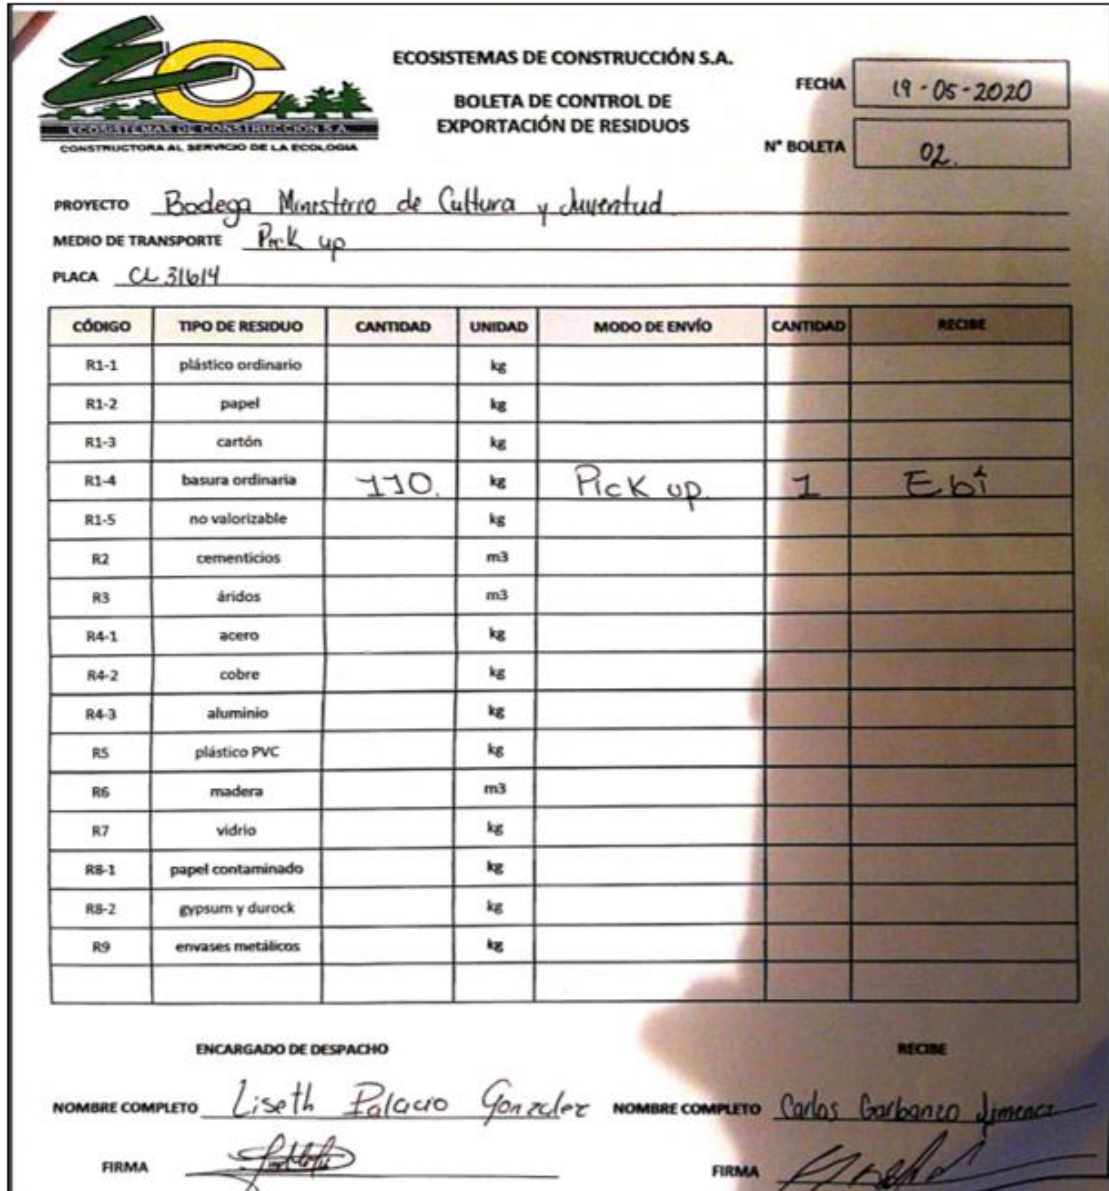 ECOSISTEMAS DE CONSTRUCCIÓN S.A.
CONSTRUCTORA AL SERVICIO DE LA ECOLOGIA
ECOSISTEMAS DE CONSTRUCCIÓN S.A.
BOLETA DE CONTROL DE
EXPORTACIÓN DE RESIDUOS
FECHA 19-05-2020
N° BOLETA 02.
PROYECTO Bodega Ministerio de Cultura y Juventud
MEDIO DE TRANSPORTE Pick up
PLACA CL 31614
CÓDIGO TIPO DE RESIDUO CANTIDAD UNIDAD MODO DE ENVÍO CANTIDAD RECIBE
R1-1 plástico ordinario kg
R1-2 papel kg
R1-3 cartón kg
R1-4 basura ordinaria 110. kg Pick up. 1 Ebi
R1-5 no valorizable kg
R2 cementicios m3
R3 áridos m3
R4-1 acero kg
R4-2 cobre kg
R4-3 aluminio kg
R5 plástico PVC kg
R6 madera m3
R7 vidrio kg
R8-1 papel contaminado kg
R8-2 gypsum y durock kg
R9 envases metálicos kg
ENCARGADO DE DESPACHO RECIBE
NOMBRE COMPLETO Liseth Palacio Gonzalez NOMBRE COMPLETO Carlos Garbanzo Jimenez
FIRMA FIRMA